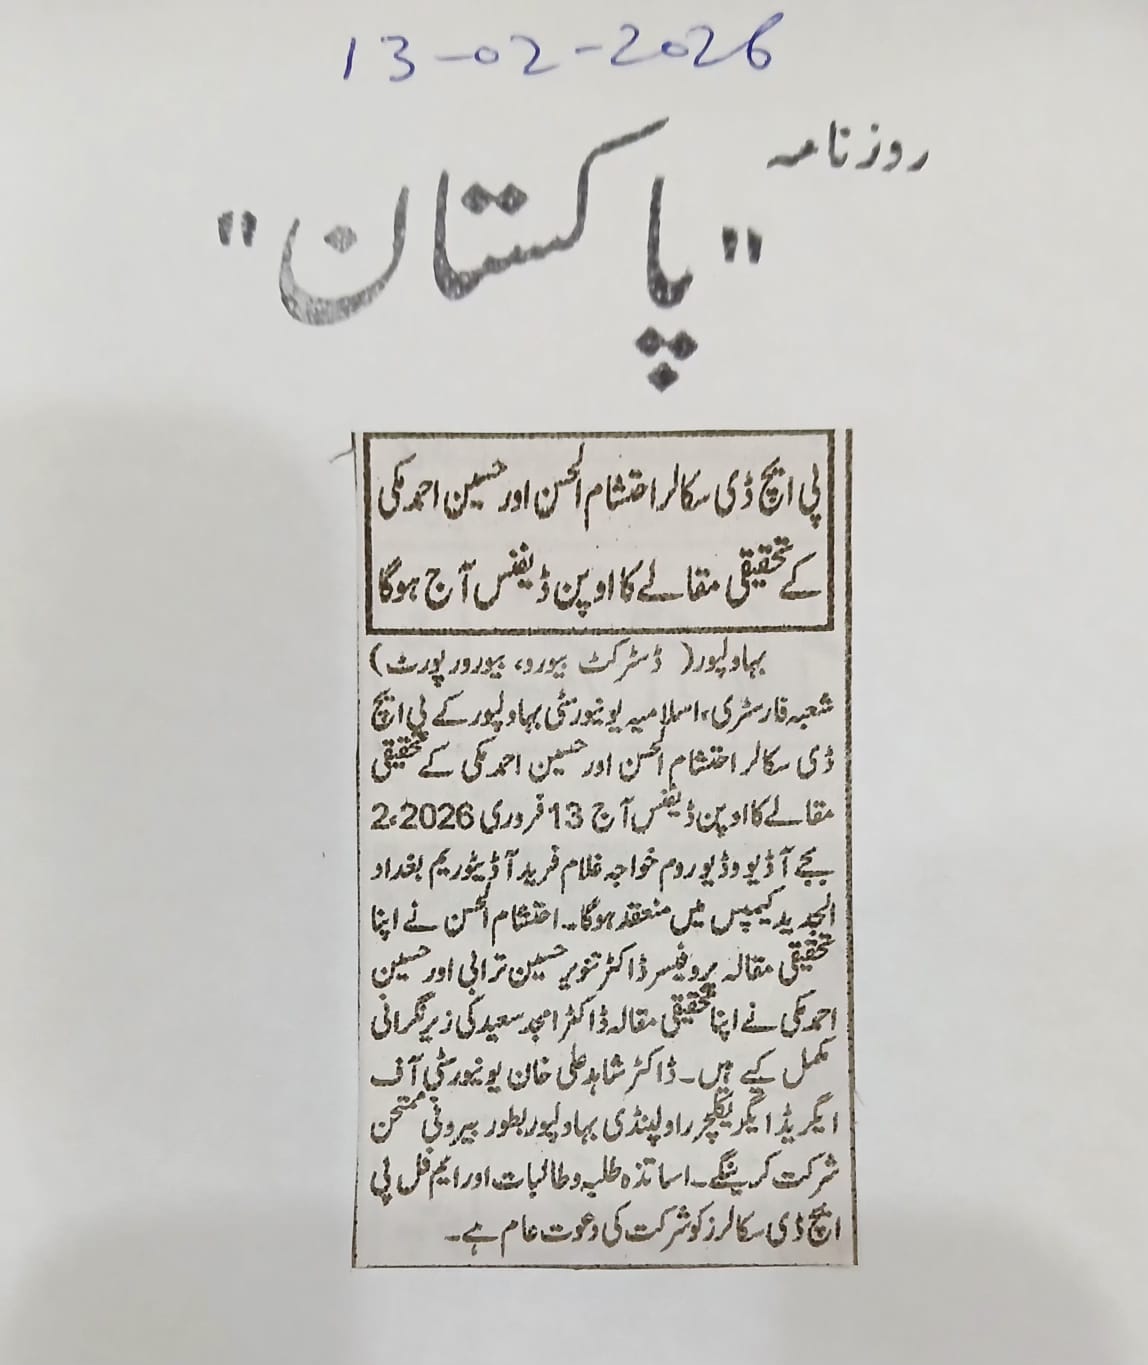 13-02-2026
روزنامہ
"پاکستان"
پی ایچ ڈی سکالر احتشام الحسن اور حسین احمد مکی
کے تحقیقی مقالے کا اوپن ڈیفنس آج ہوگا
بہاولپور( ڈسٹرکٹ بیورو، بیورورپورٹ)
شعبہ فارسٹری، اسلامیہ یونیورسٹی بہاولپور کے پی ایچ
ڈی سکالر احتشام الحسن اور حسین احمد مکی کے تحقیقی
مقالے کا اوپن ڈیفنس آج 13 فروری 2026، 2
بجے آڈیو وڈیو روم خواجہ غلام فرید آڈیٹوریم بغداد
الجدید کیمپس میں منعقد ہوگا۔ احتشام الحسن نے اپنا
تحقیقی مقالہ پروفیسر ڈاکٹر تنویر حسین ترابی اور حسین
احمد مکی نے اپنا تحقیقی مقالہ ڈاکٹر امجد سعید کی زیر نگرانی
مکمل کیے ہیں۔ ڈاکٹر شاہد علی خان یونیورسٹی آف
ایگریڈ ایگریکلچر راولپنڈی بہاولپور بطور بیرونی ممتحن
شرکت کرینگے۔ اساتذہ طلبہ و طالبات اور ایم فل پی
ایچ ڈی سکالرز کو شرکت کی دعوت عام ہے۔